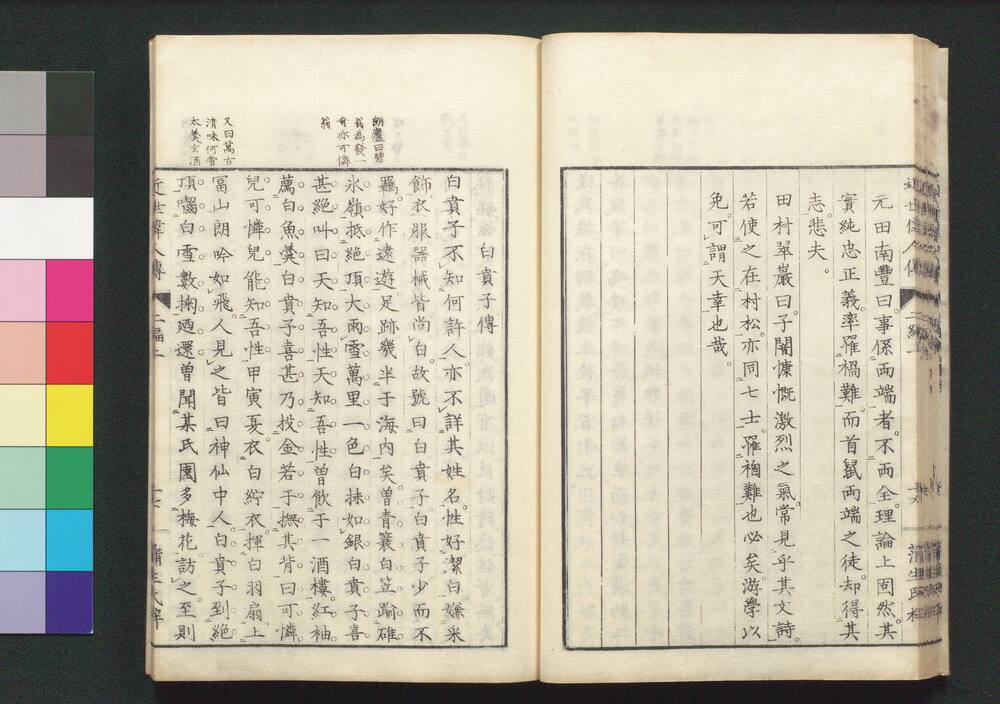 元田南豐曰事係兩端者。不兩全。理論上固然。其
實純忠正義。率罹禍難。而首鼠兩端之徒。却得其
志。悲夫。
田村翠巖曰。子闇慷慨激烈之氣。常見乎其文詩。
若使之在村松。亦同七士。罹禍難也必矣。游學以
免。可謂天幸也哉。
近世偉人傳
二編上
十六
蒲生氏梓
白賁子傳
白賁子不知何許人。亦不詳其姓名。性好潔白。嫌采
飾。衣服器械皆尚白。故號曰白賁子。白賁子少而不
羈。好作遠遊。足跡幾半于海内矣。曾青蓑白笠。踰碓
氷嶺。抵絕頂。大雨雪。萬里一色。白抹如銀。白賁子喜
甚。絕叫曰。天知吾性。天知吾性。曾飲于一酒樓。紅袖
薦白魚羹。白賁子喜甚。乃投金若于。撫其背曰。可憐
兒可憐兒。能知吾性。甲寅夏。衣白紵衣。揮白羽扇。上
冨山。朗吟如飛。人見之。皆曰神仙中人。白賁子到絕
頂。齧白雪數掬。廼還。曾聞某氏園多梅花。訪之。至則
朗廬曰碧
翁為發一
奇亦可憐
翁
又曰萬古
清味何啻
太羹玄酒
近世偉人傳
二編上
十七
蒲生氏梓